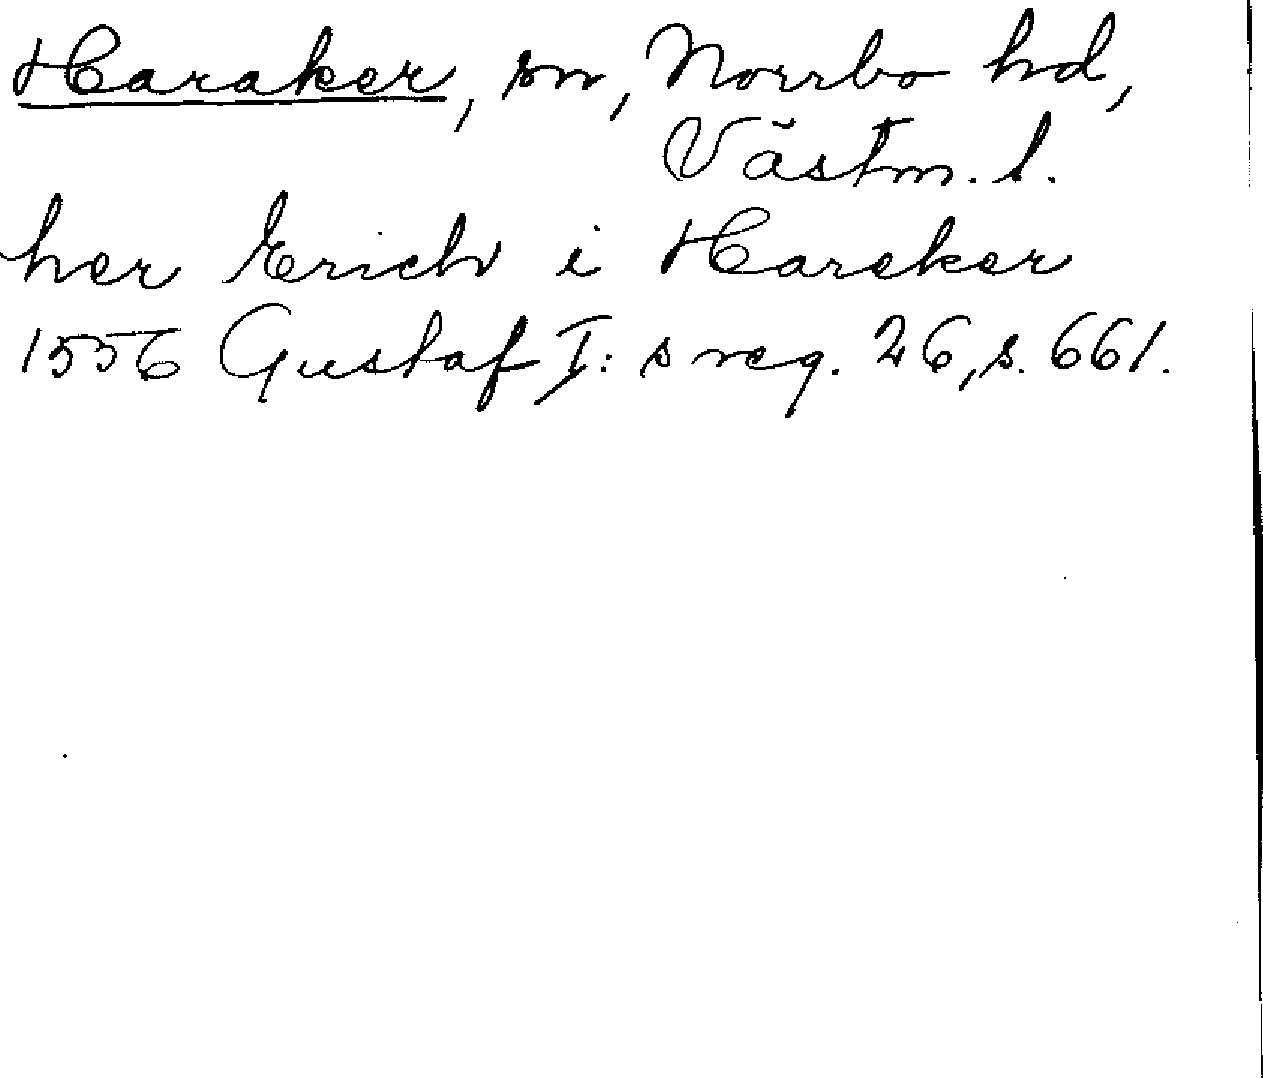 Haraker, sn, Norrbo hd,
Västm. l.
her Erich i Hareker
1556 Gustaf I:s reg. 26, s. 661.